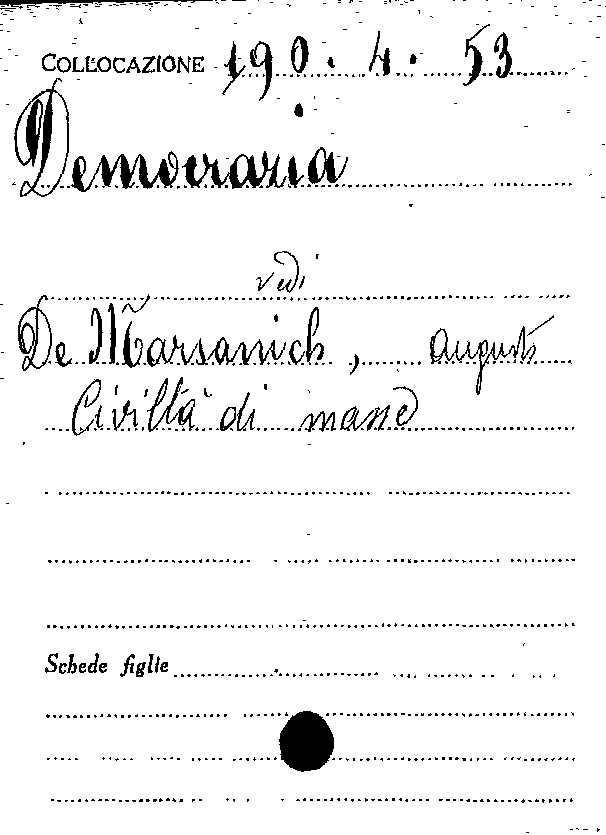 COLLOCAZIONE 190. 4. 53
Democrazia
vedi
De Marsanich, Augusto
Civiltà di masse
Schede figlie